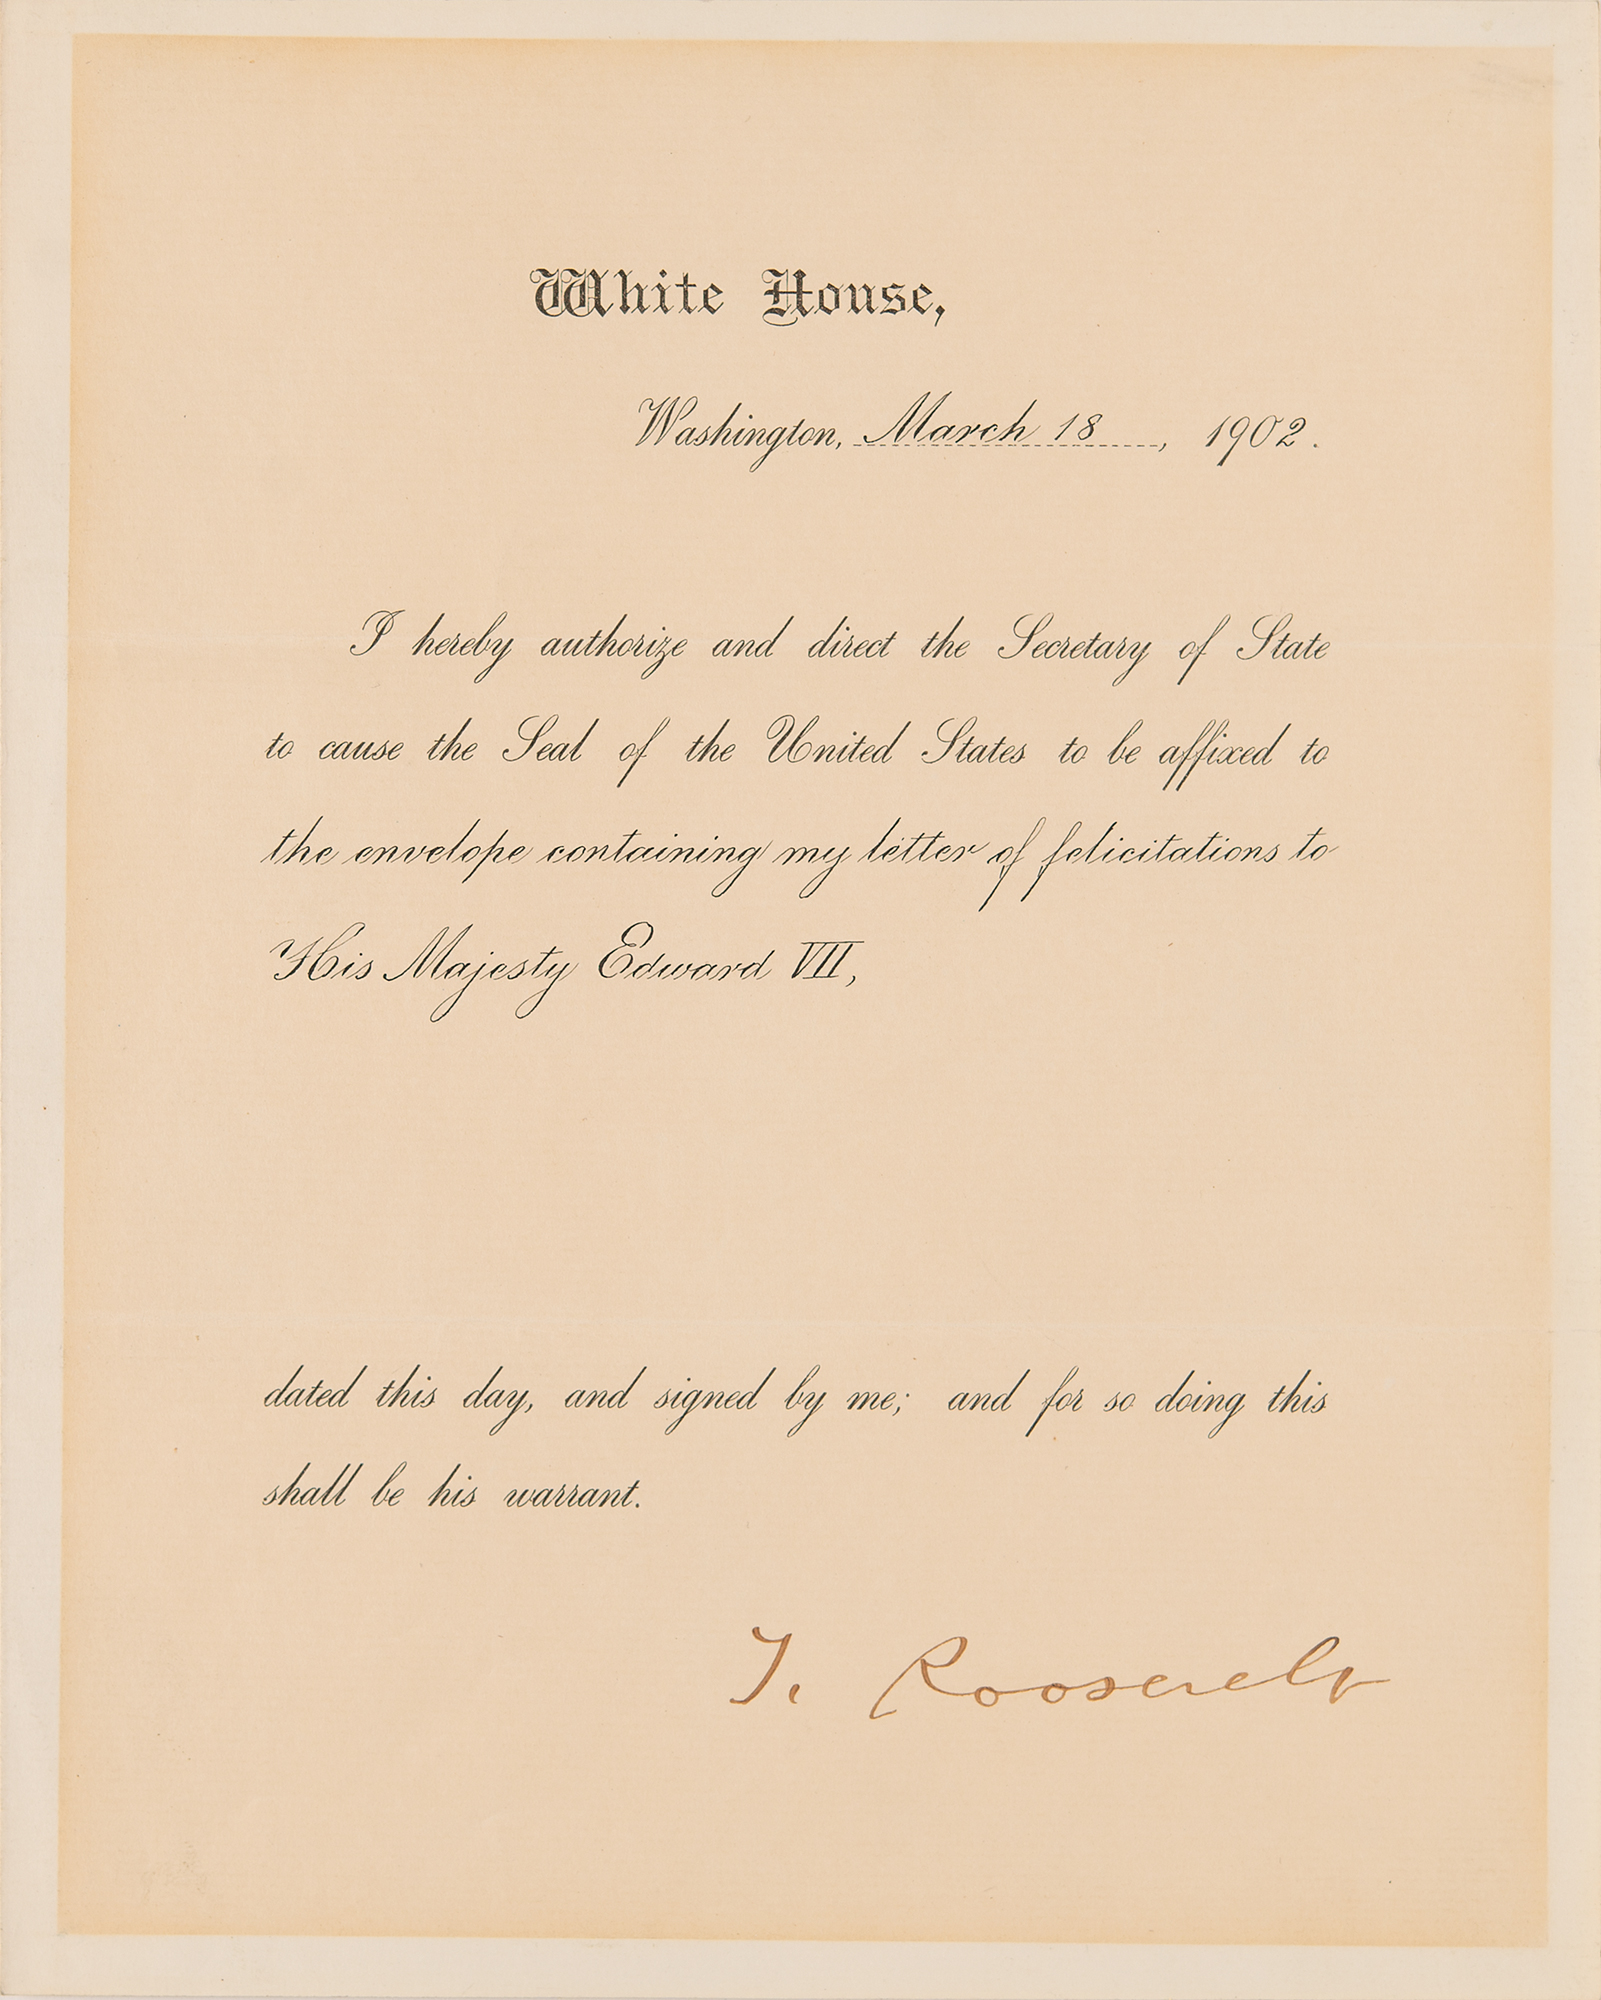 White House,
Washington, March 18, 1902.
I hereby authorize and direct the Secretary of State
to cause the Seal of the United States to be affixed to
the envelope containing my letter of felicitations to
His Majesty Edward VII,
dated this day, and signed by me; and for so doing this
shall be his warrant.
T. Roosevelt